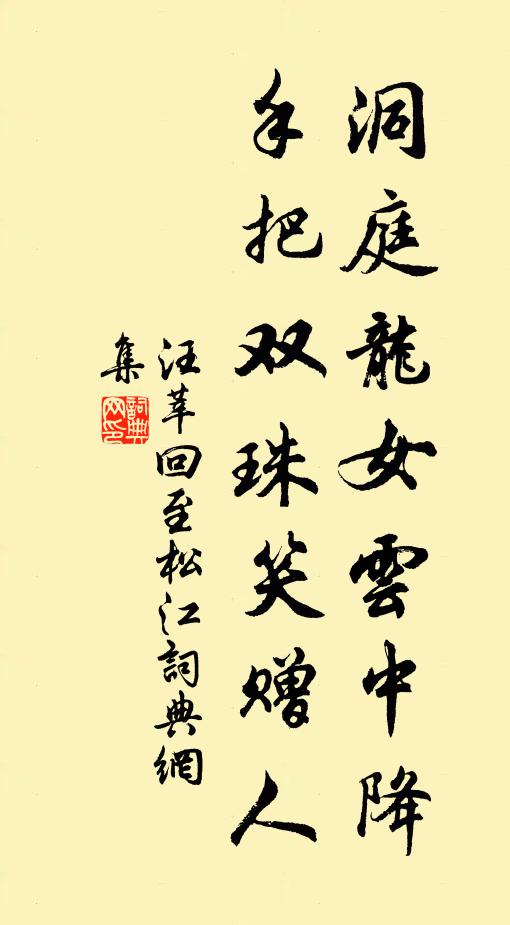 洞庭龍女雲中降
手把双珠笑赠人
汪莘回至松江詞典網
集
詞典
网印